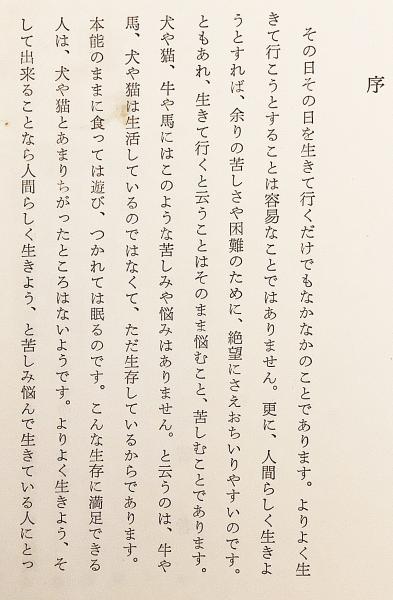 序
その日その日を生きて行くだけでもなかなかのことであります。よりよく生
きて行こうとすることは容易なことではありません。更に、人間らしく生きよ
うとすれば、余りの苦しさや困難のために、絶望にさえおちいりやすいのです。
ともあれ、生きて行くと云うことはそのまま悩むこと、苦しむことであります。
犬や猫、牛や馬にはこのような苦しみや悩みはありません。と云うのは、牛や
馬、犬や猫は生活しているのではなくて、ただ生存しているからであります。
本能のままに食っては遊び、つかれては眠るのです。こんな生存に満足できる
人は、犬や猫とあまりちがったところはないようです。よりよく生きよう、そ
して出来ることなら人間らしく生きよう、と苦しみ悩んで生きている人にとっ